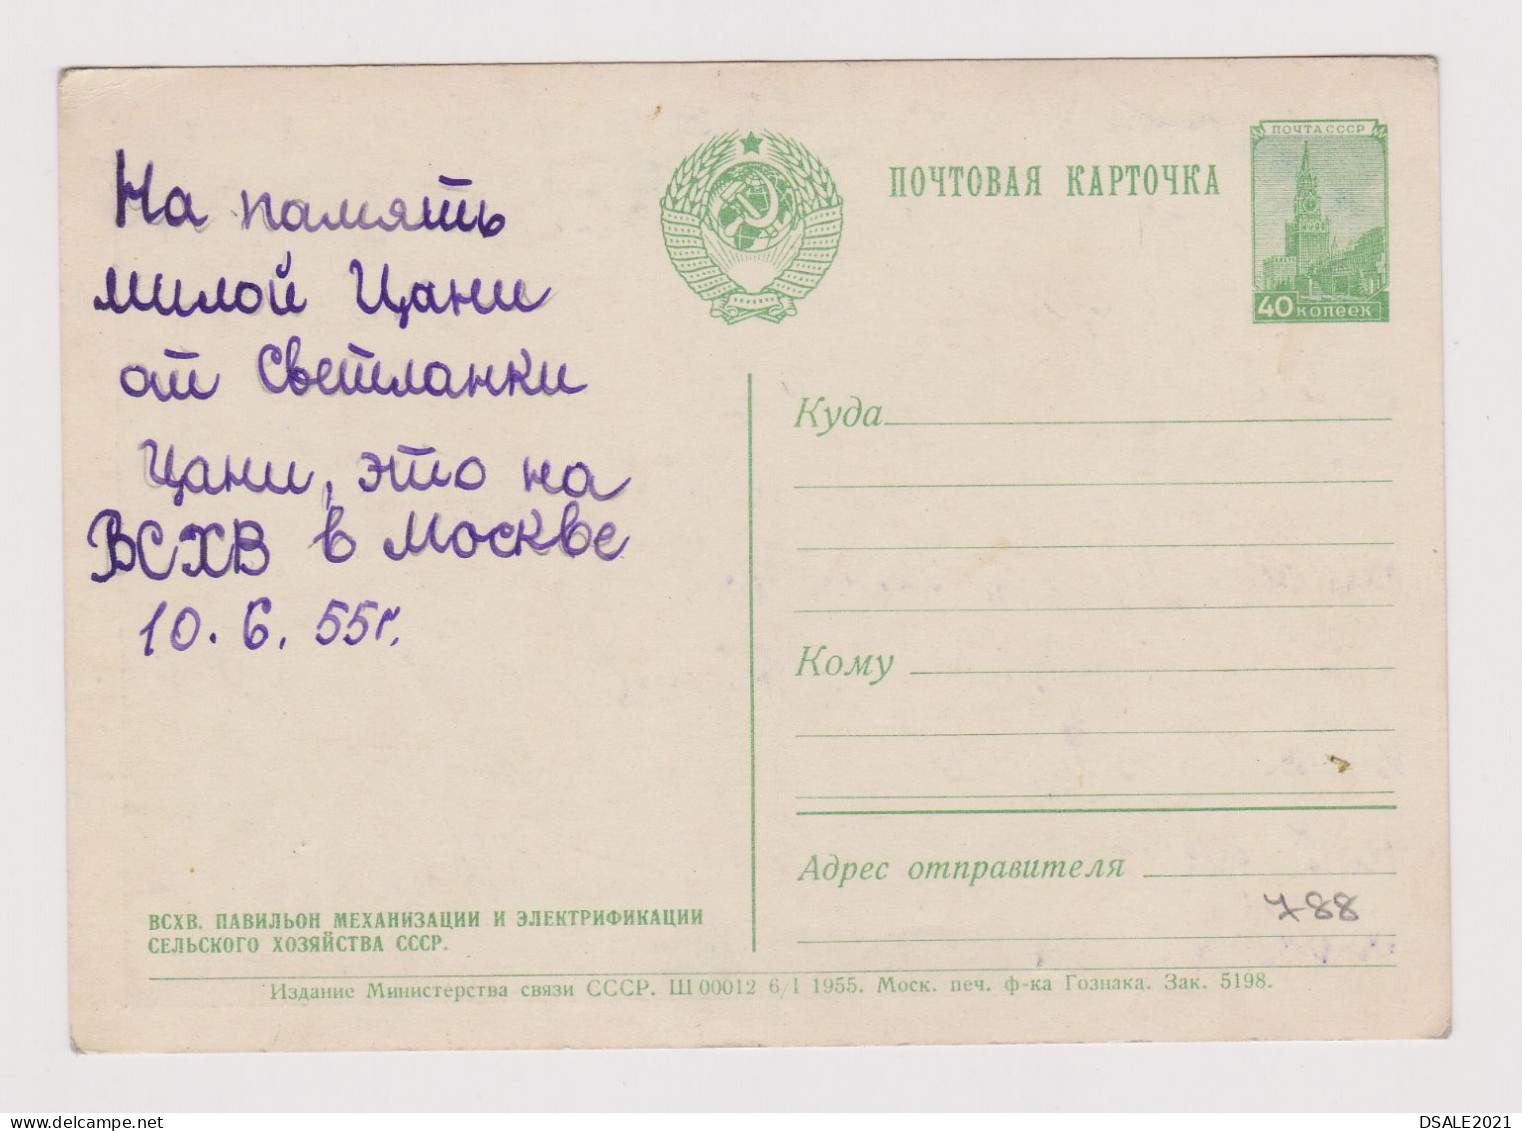 На память
милой Цани
от Светланки
Цани, это на
ВСХВ в Москве
10. 6. 55г.
ПОЧТОВАЯ КАРТОЧКА
ПОЧТА СССР
40 копеек
Куда
Кому
Адрес отправителя
788
ВСХВ. ПАВИЛЬОН МЕХАНИЗАЦИИ И ЭЛЕКТРИФИКАЦИИ
СЕЛЬСКОГО ХОЗЯЙСТВА СССР.
Издание Министерства связи СССР. Ш 00012 6/I 1955. Моск. печ. ф-ка Гознака. Зак. 5198.
DSALE2021